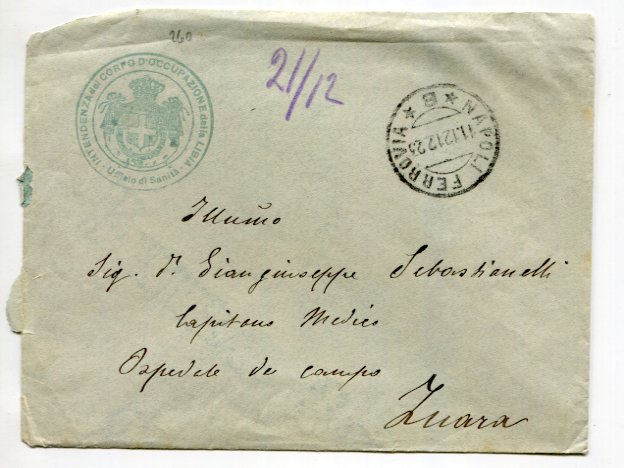 260
21/12
INTENDENZA del CORPO D'OCCUPAZIONE della LIBIA
Ufficio di Sanità
NAPOLI FERROVIA
B
11.12 12.23
Illumo
Sig. Dr. Giangiuseppe Sebastianelli
Capitano Medico
Ospedale da campo
Zuara